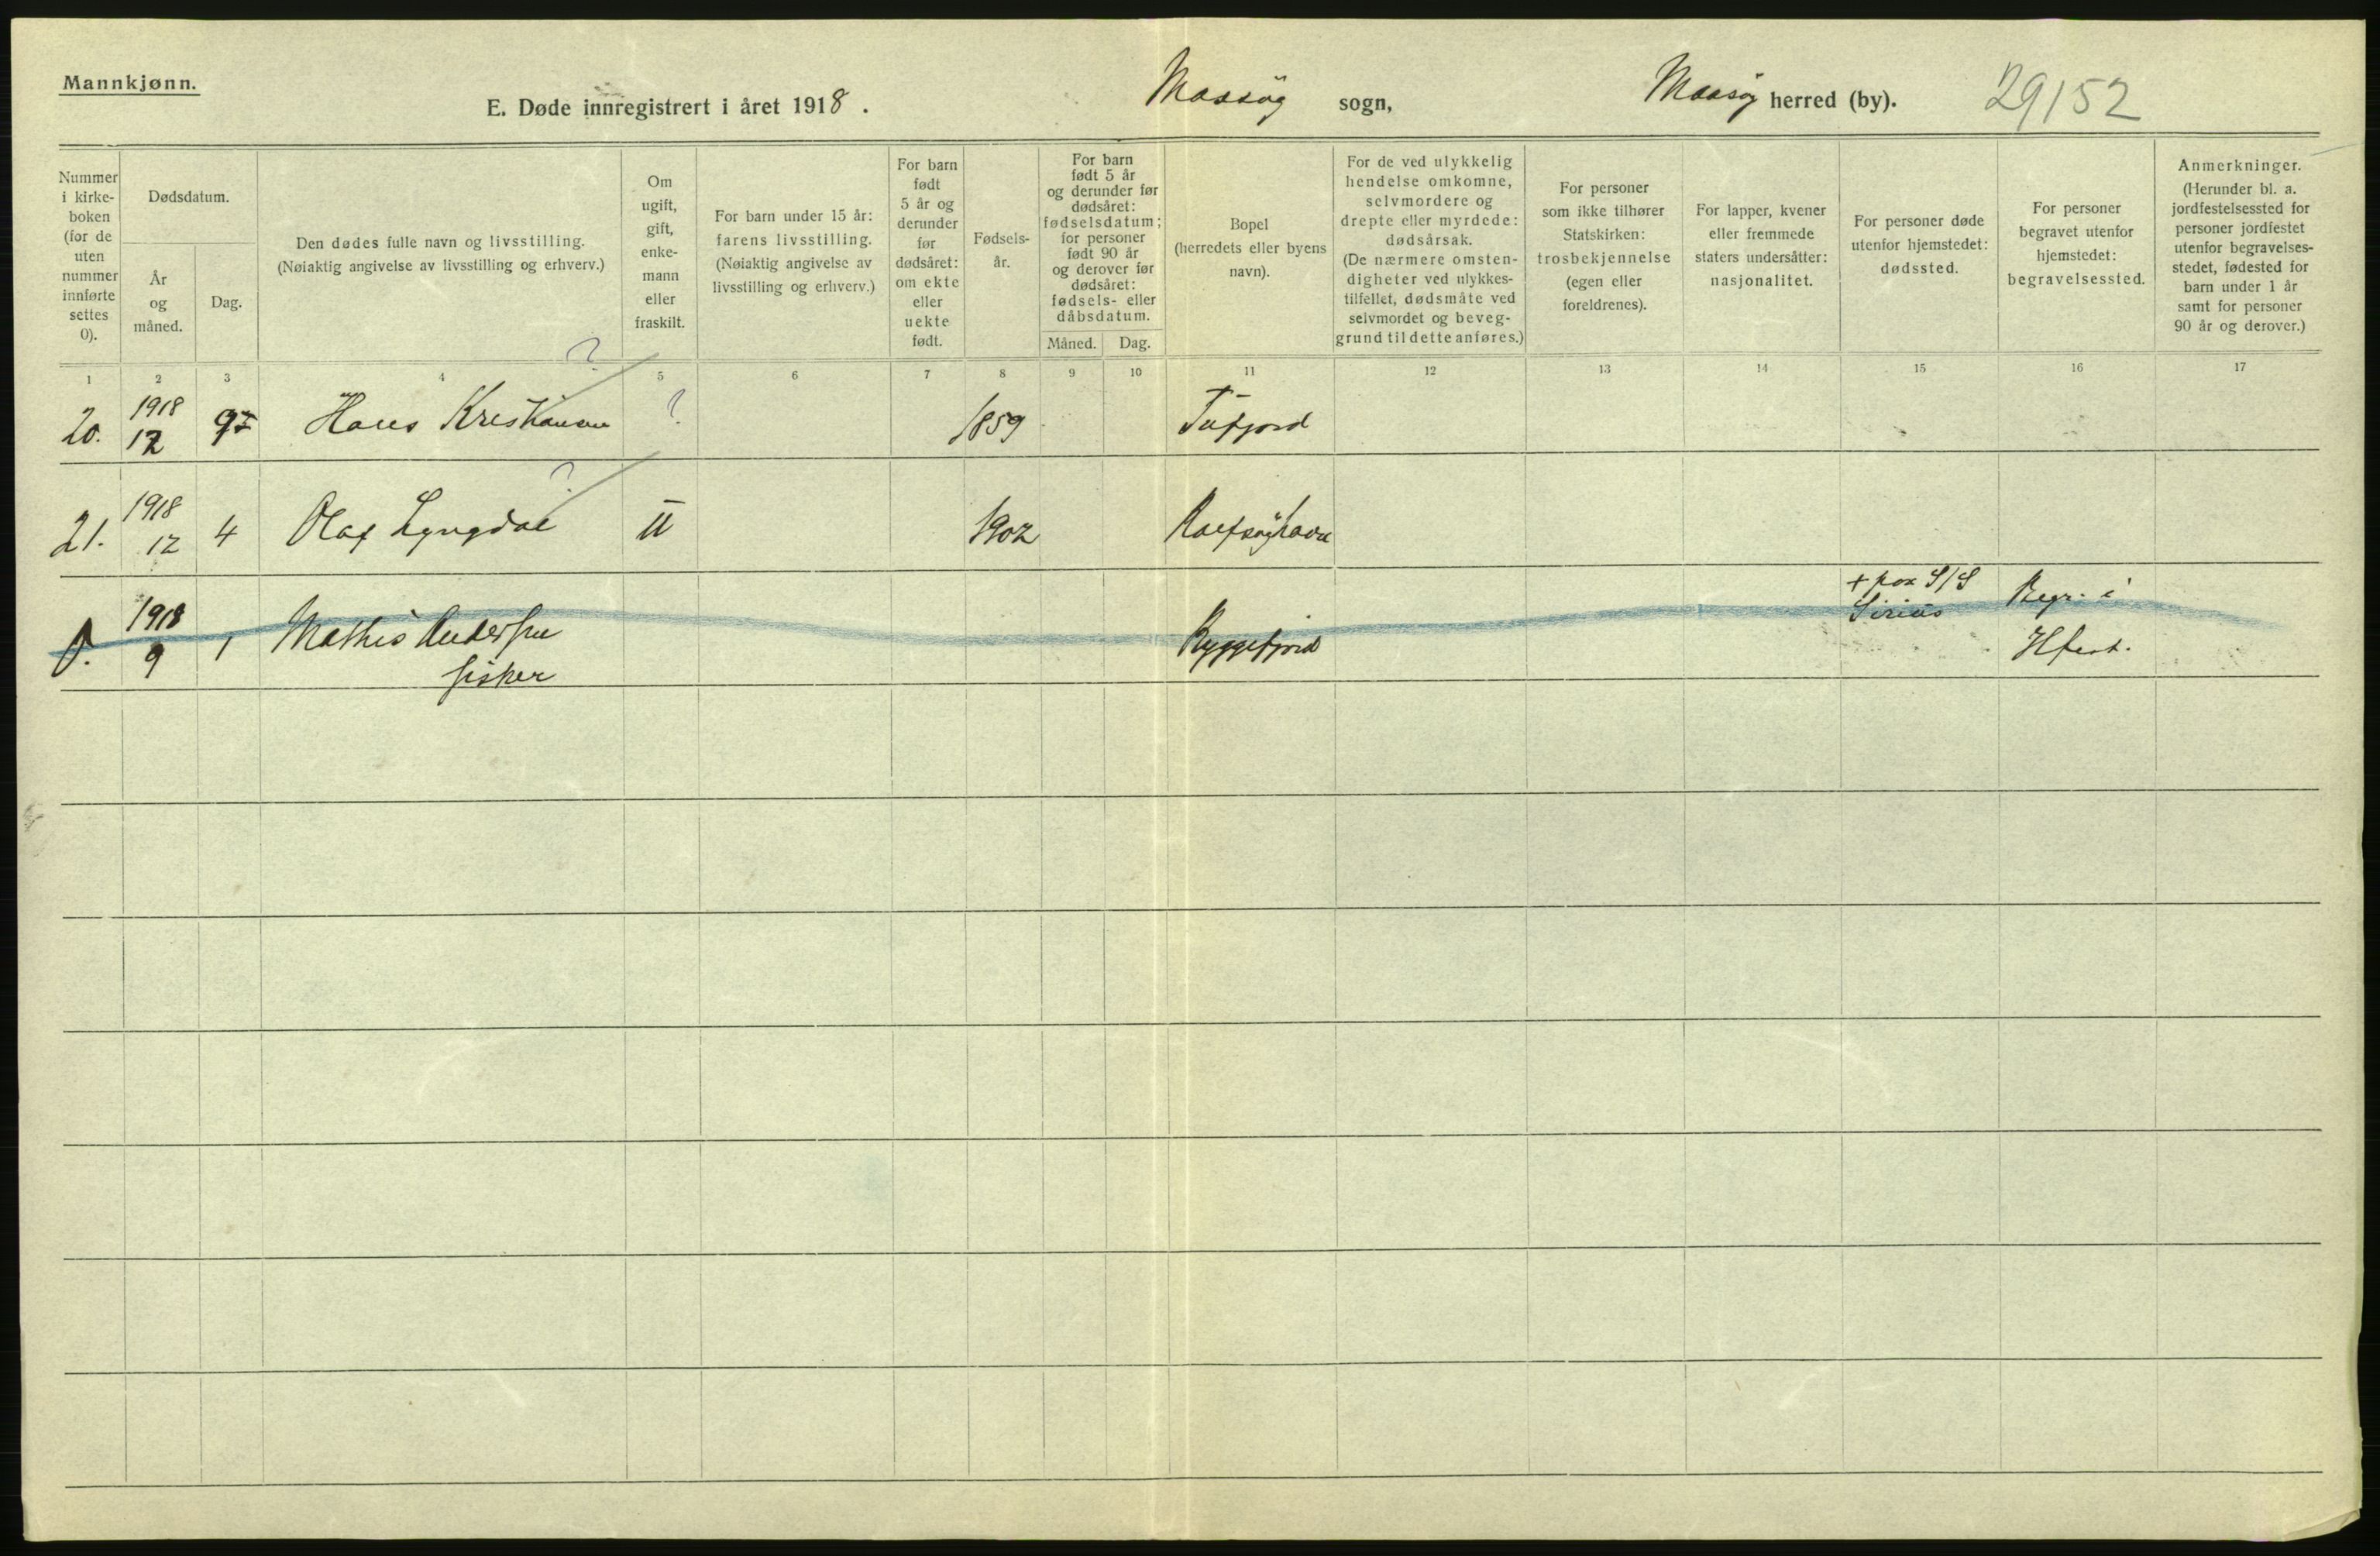 Mannkjønn.
E. Døde innregistrert i året 1918. Massøy sogn, Maasøy herred (by). 29152
Nummer i kirke-boken (for de uten nummer innførte settes 0).
Dødsdatum.
År og måned.
Dag.
Den dødes fulle navn og livsstilling.
(Nøiaktig angivelse av livsstilling og erhverv.)
Om ugift, gift, enke-mann eller fraskilt.
For barn under 15 år:
farens livsstilling.
(Nøiaktig angivelse av
livsstilling og erhverv.)
For barn
født
5 år og
derunder
før
dødsåret:
om ekte
eller
uekte
født.
Fødsels-
år.
For barn
født 5 år
og derunder før
dødsåret:
fødselsdatum;
for personer
født 90 år
og derover før
dødsåret:
fødsels- eller
dåbsdatum.
Måned. Dag.
Bopel
(herredets eller byens
navn).
For de ved ulykkelig
hendelse omkomne,
selvmordere og
drepte eller myrdede:
dødsårsak.
(De nærmere omsten-
digheter ved ulykkes-
tilfellet, dødsmåte ved
selvmordet og beveg-
grund til dette anføres.)
For personer
som ikke tilhører
Statskirken:
trosbekjennelse
(egen eller
foreldrenes).
For lapper, kvener
eller fremmede
staters undersåtter:
nasjonalitet.
For personer døde
utenfor hjemstedet:
dødssted.
For personer
begravet utenfor
hjemstedet:
begravelsessted.
Anmerkninger.
(Herunder bl. a.
jordfestelsessted for
personer jordfestet
utenfor begravelses-
stedet, fødested for
barn under 1 år
samt for personer
90 år og derover.)
1 2 3 4 5 6 7 8 9 10 11 12 13 14 15 16 17
20. 1918 12 Hans Kristiansen ? ? 1859 Tufjord
21. 1918 12 4 Olaf Lyngdal ? U 1902 Rolfsøyhavn
0. 1918 9 1 Mathis Anderssen
fisker
Ryggefjord
+ paa S/S
Sirius
Begr. i
Hfest.